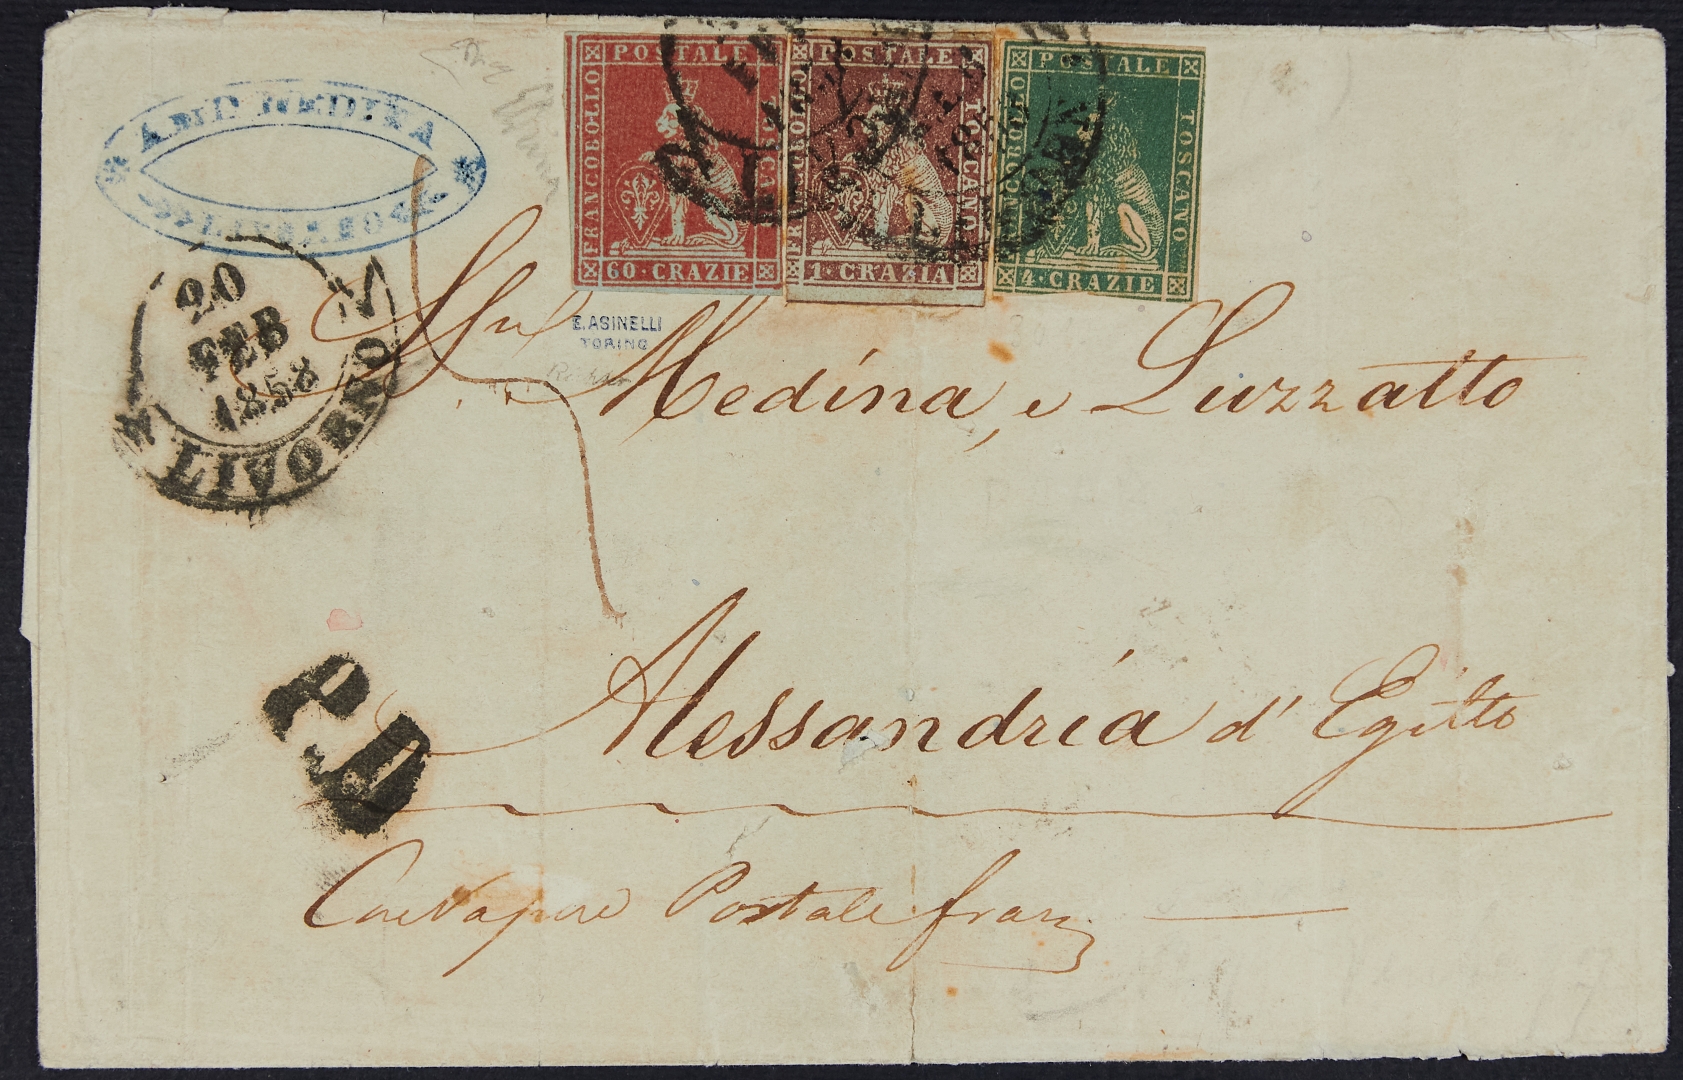 AMD MEDINA
LIVORNO
POSTALE
FRANCOBOLLO
TOSCANO
60·CRAZIE
POSTALE
FRANCOBOLLO
TOSCANO
1·CRAZIA
POSTALE
FRANCOBOLLO
TOSCANO
4·CRAZIE
20
FEB
1858
LIVORNO
E.ASINELLI
TORINO
Medina, e Luzzatto
P.D
Alessandria d' Egitto
Postale franz